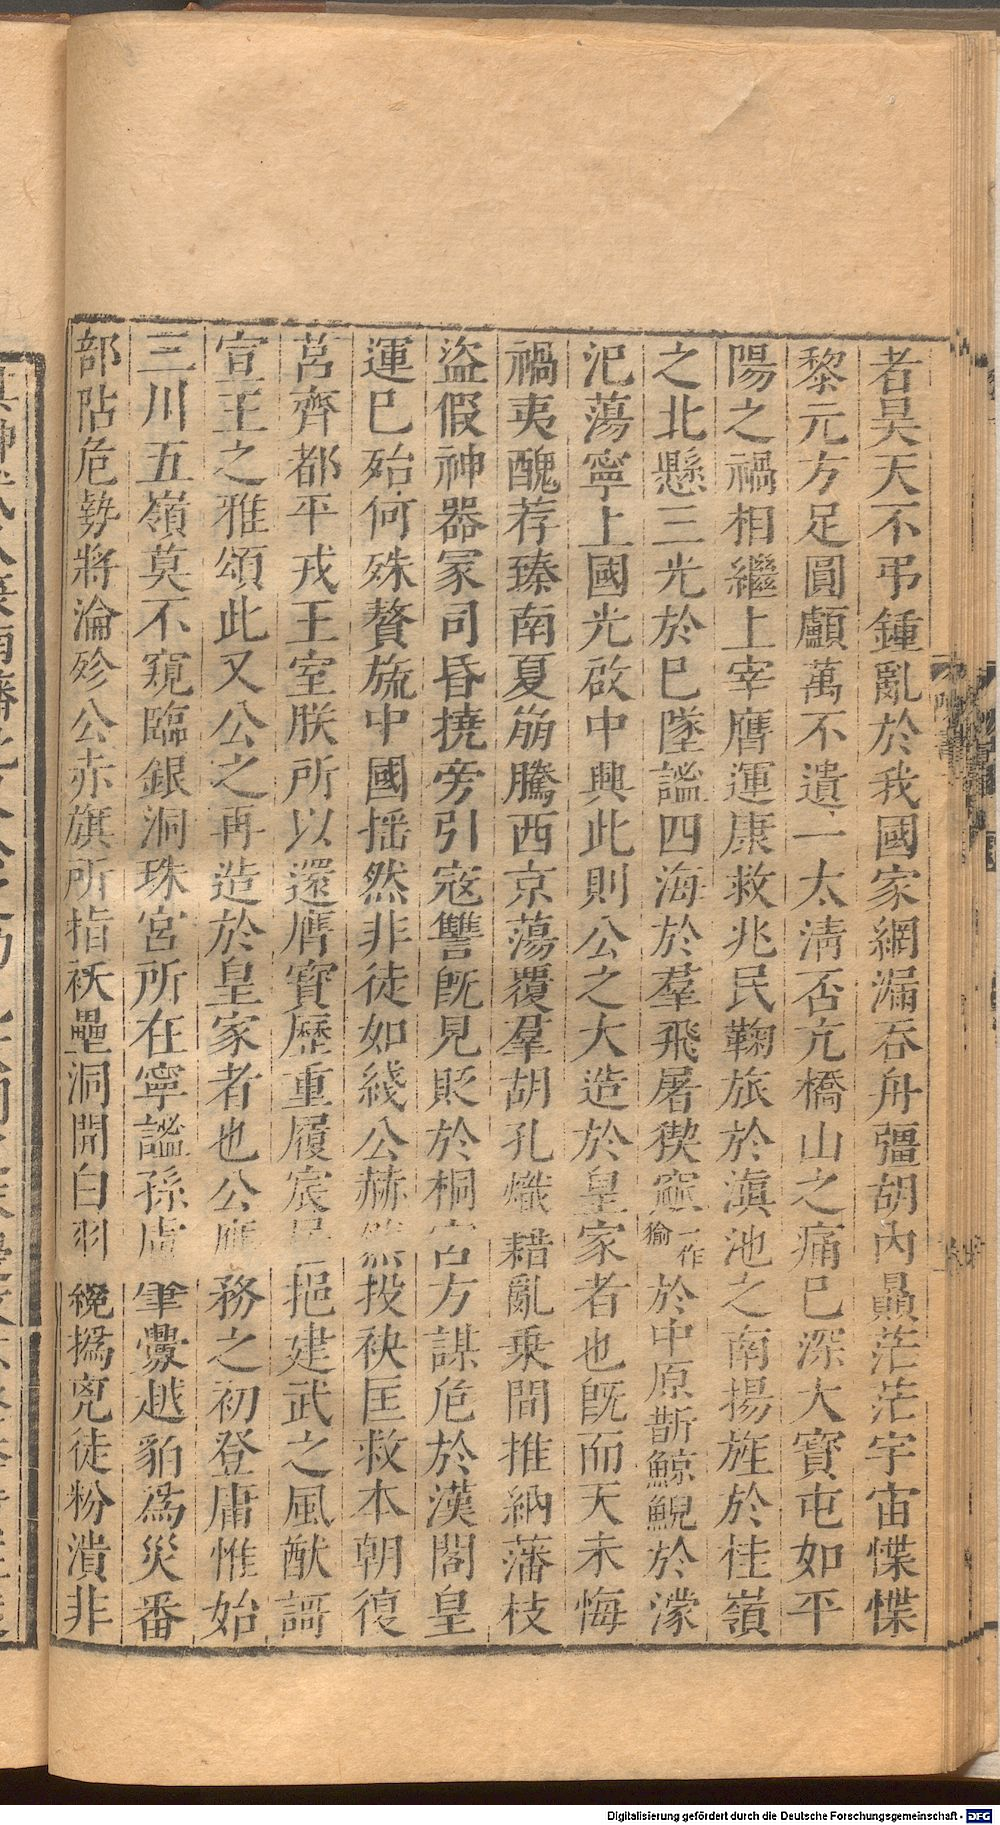 者昊天不弔鍾亂於我國家網漏吞舟彊胡內贔茫茫宇宙慄慄
黎元方足圓顱萬不遺一太清否亢橋山之痛已深大寶屯如平
陽之禍相繼上宰膺運康救兆民鞠旅於滇池之南揚旌於桂嶺
之北懸三光於已墜謐四海於羣飛屠猰窳一作㺄於中原斮鯨鯢於濛
汜蕩寧上國光啟中興此則公之大造於皇家者也既而天未悔
禍夷醜荐臻南夏崩騰西京蕩覆羣胡孔熾藉亂乗間推納藩枝
盜假神器冢司昏撓旁引寇讐既見貶於桐宮方謀危於漢閣皇
運已殆何殊贅旒中國搖然非徒如綫公赫然投袂匡救本朝復
莒齊都平戎王室朕所以還膺寶歷重履宸居挹建武之風猷謌
宣王之雅頌此又公之再造於皇家者也公應務之初登庸惟始
三川五嶺莫不窺臨銀洞珠宮所在寧謐孫盧肇釁越貊為災番
部阽危勢將淪殄公赤旗所指祅壘洞開白羽纔撝兇徒粉潰非
Digitalisierung gefördert durch die Deutsche Forschungsgemeinschaft - DFG